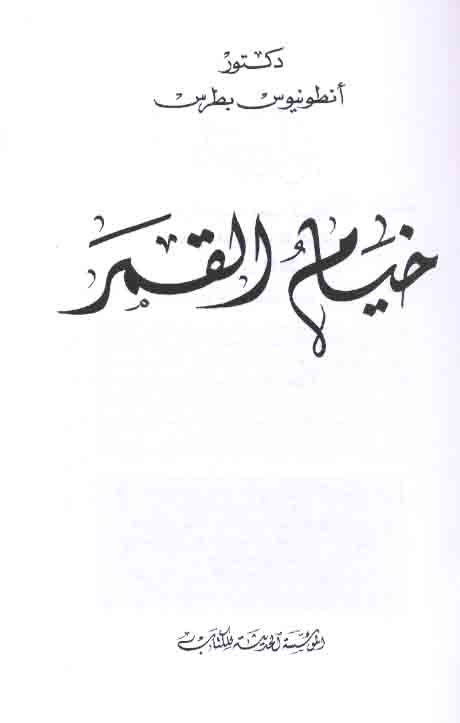 دكتور
أنطونيوس بطرس
خيامُ القمر
المؤسسة الحديثة للكتاب